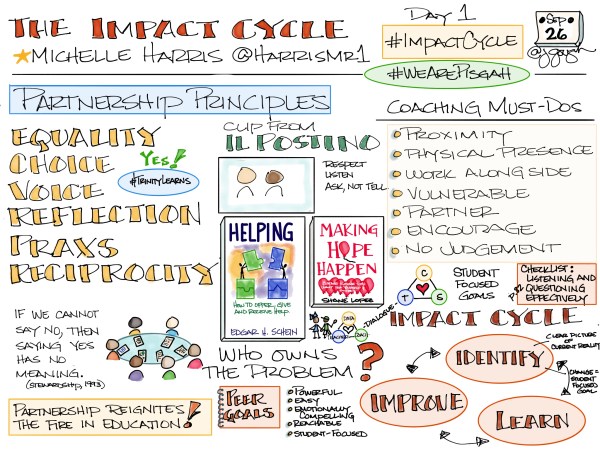 The Impact Cycle
Michelle Harris @HarrisMr1
Day 1
#ImpactCycle
Sep
26
@jgough
#WeArePisgah
Partnership Principles
Equality
Choice
Voice
Reflection
Praxs
Reciprocity
Yes!
#TrinityLearns
Clip from
Il Postino
Respect
Listen
Ask, not tell
HELPING
How to offer, give
and receive help
Edgar H. Schein
Making
Hope
Happen
Shane Lopez
Coaching Must-Dos
Proximity
Physical Presence
Work alongside
Vulnerable
Partner
Encourage
No Judgement
C
T
S
Student
Focused
Goals
Checklist:
Listening and
Questioning
Effectively
If we cannot
say no, then
saying yes
has no
meaning.
(Stewardship, 1993)
Partnership reignites
the fire in education!
Dialogue
Data
Teacher
Who owns
the problem?
Peer
Goals
Powerful
Easy
Emotionally
Compelling
Reachable
Student-Focused
Impact Cycle
Identify
Clear picture of
current reality
Change =
Student
Focused
Goal
Improve
Learn